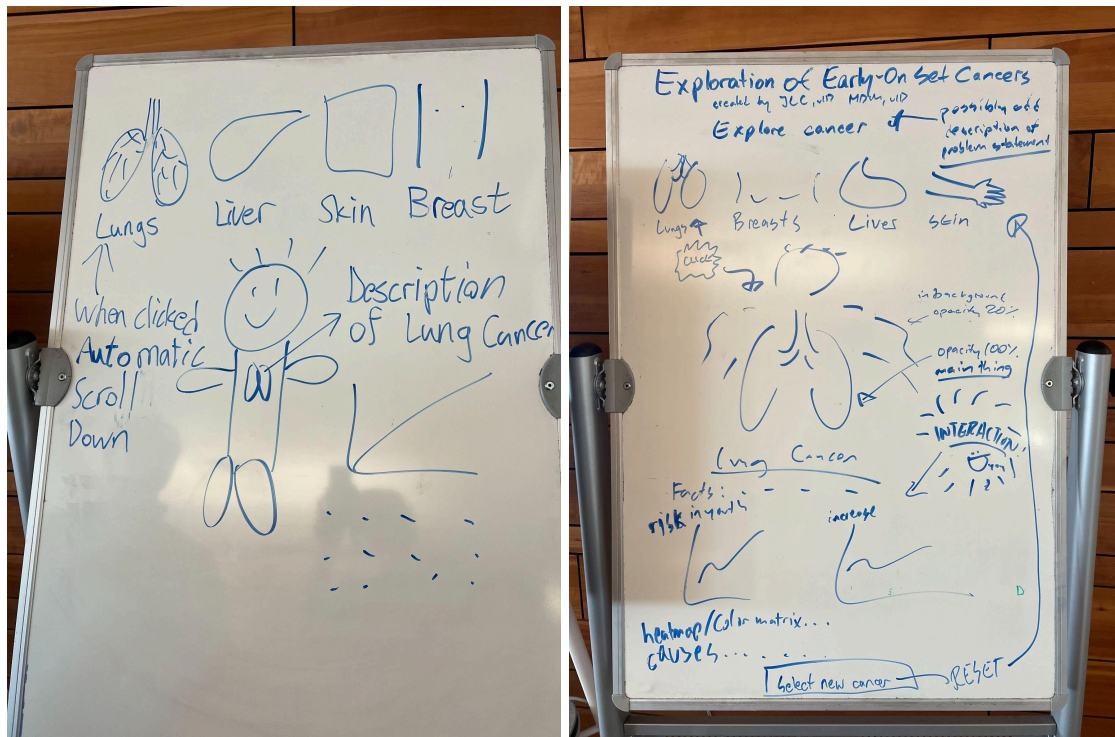 Lungs
Liver
Skin
Breast
When clicked
Automatic
Scroll
Down
Description
of Lung Cancer
Exploration of Early-Onset Cancers
Explore cancer
possibly add
description of
problem statement
Lungs
Breasts
Liver
Skin
click
in background
opacity 20%
opacity 100%
main thing
INTERACTION!
Lung Cancer
Facts:
risk in youth
increase
heatmap/Color matrix...
causes......
Select new cancer
RESET